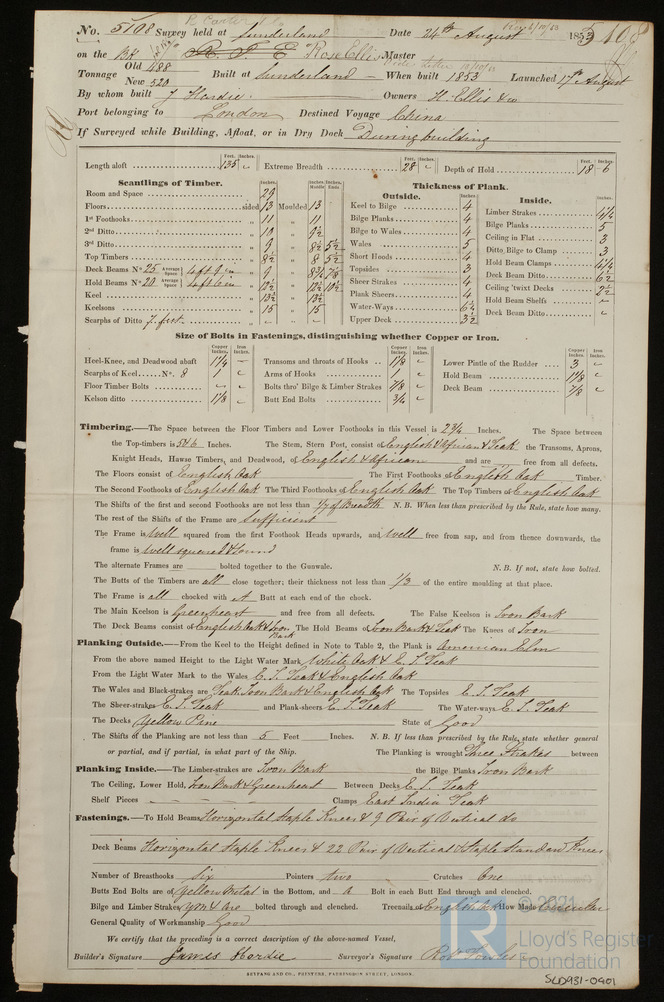 No. 5108 Survey held at Sunderland Date 24th August 1853 5108
on the Bk R. T. E Rose Ellis Master
Tonnage Old 488 New 520 Built at Sunderland When built 1853 Launched 17th August
By whom built J Hardie Owners H. Ellis & Co
Port belonging to London Destined Voyage China
If Surveyed while Building, Afloat, or in Dry Dock During building
Length aloft Feet. 135 Inches. Extreme Breadth Feet. 28 Inches. Depth of Hold Feet. 18 Inches. 6
Scantlings of Timber.
Room and Space 29
Floors sided 13 Moulded 13
1st Foothooks " 11 " 11
2nd Ditto " 10 " 9½
3rd Ditto " 9 " 8½ 5½
Top Timbers " 8½ " 8 5½
Deck Beams No. 25 Average Space 4 ft 9 in " 9 " 8¾ 7⅜
Hold Beams No. 20 Average Space 4 ft 6 in " 12½ " 12½ 10½
Keel " 13½ " 13½
Keelsons " 15 " 15
Scarphs of Ditto 7 feet
Thickness of Plank.
Outside. Inches.
Keel to Bilge 4
Bilge Planks 4
Bilge to Wales 4
Wales 5
Short Hoods 4
Topsides 3
Sheer Strakes 4
Plank Sheers 4
Water-Ways 6½
Upper Deck 3½
Inside. Inches.
Limber Strakes 4¼
Bilge Planks 5
Ceiling in Flat 3
Ditto, Bilge to Clamp 3
Hold Beam Clamps 4¼
Deck Beam Ditto 6½
Ceiling 'twixt Decks 2½
Hold Beam Shelfs
Deck Beam Ditto
Size of Bolts in Fastenings, distinguishing whether Copper or Iron.
Copper Inches. Iron Inches.
Heel-Knee, and Deadwood abaft 1¼
Scarphs of Keel No. 8 1
Floor Timber Bolts
Kelson ditto 1⅛
Copper Inches. Iron Inches.
Transoms and throats of Hooks 1⅛
Arms of Hooks 1
Bolts thro' Bilge & Limber Strakes ⅞
Butt End Bolts ¾
Copper Inches. Iron Inches.
Lower Pintle of the Rudder 3
Hold Beam 1⅛
Deck Beam ⅞
Timbering.—The Space between the Floor Timbers and Lower Foothooks in this Vessel is 2¾ Inches. The Space between
the Top-timbers is 5 to 6 Inches. The Stem, Stern Post, consist of English & African & Teak the Transoms, Aprons,
Knight Heads, Hawse Timbers, and Deadwood, of English & African and are free from all defects.
The Floors consist of English Oak The First Foothooks of English Oak Timber.
The Second Foothooks of English Oak The Third Foothooks of English Oak The Top Timbers of English Oak
The Shifts of the first and second Foothooks are not less than 1/7 of Breadth N. B. When less than prescribed by the Rule, state how many.
The rest of the Shifts of the Frame are Sufficient
The Frame is Well squared from the first Foothook Heads upwards, and Well free from sap, and from thence downwards, the
frame is Well squared & sound
The alternate Frames are bolted together to the Gunwale. N. B. If not, state how bolted.
The Butts of the Timbers are all close together; their thickness not less than 1/3 of the entire moulding at that place.
The Frame is all chocked with A Butt at each end of the chock.
The Main Keelson is Greenheart and free from all defects. The False Keelson is Iron Bark
The Deck Beams consist of English Oak & Iron Bark The Hold Beams of Iron Bark & Teak The Knees of Iron
Planking Outside.—From the Keel to the Height defined in Note to Table 2, the Plank is American Elm
From the above named Height to the Light Water Mark White Oak & E. I. Teak
From the Light Water Mark to the Wales E. I. Teak & English Oak
The Wales and Black-strakes are Teak, Iron Bark & English Oak The Topsides E. I. Teak
The Sheer-strakes E. I. Teak and Plank-sheers E. I. Teak The Water-ways E. I. Teak
The Decks Yellow Pine State of Good
The Shifts of the Planking are not less than 5 Feet Inches. N. B. If less than prescribed by the Rule, state whether general
or partial, and if partial, in what part of the Ship. The Planking is wrought Three Strakes between
Planking Inside.—The Limber-strakes are Iron Bark the Bilge Planks Iron Bark
The Ceiling, Lower Hold, Iron Bark & Greenheart Between Decks E. I. Teak
Shelf Pieces Clamps East India Teak
Fastenings.—To Hold Beams Horizontal Staple Knees & 9 Pair of Vertical do
Deck Beams Horizontal Staple Knees & 22 Pair of Vertical & Staple Standard Knees
Number of Breasthooks Six Pointers two Crutches One
Butts End Bolts are of Yellow Metal in the Bottom, and a Bolt in each Butt End through and clenched.
Bilge and Limber Strakes bolted through and clenched. Treenails of English Oak How Made
General Quality of Workmanship Good
We certify that the preceding is a correct description of the above-named Vessel,
Builder's Signature James Hardie Surveyor's Signature
SEYFANG AND CO., PRINTERS, FARRINGDON STREET, LONDON.
© 2021
LR
Lloyd's Register
Foundation
SLD931-0401